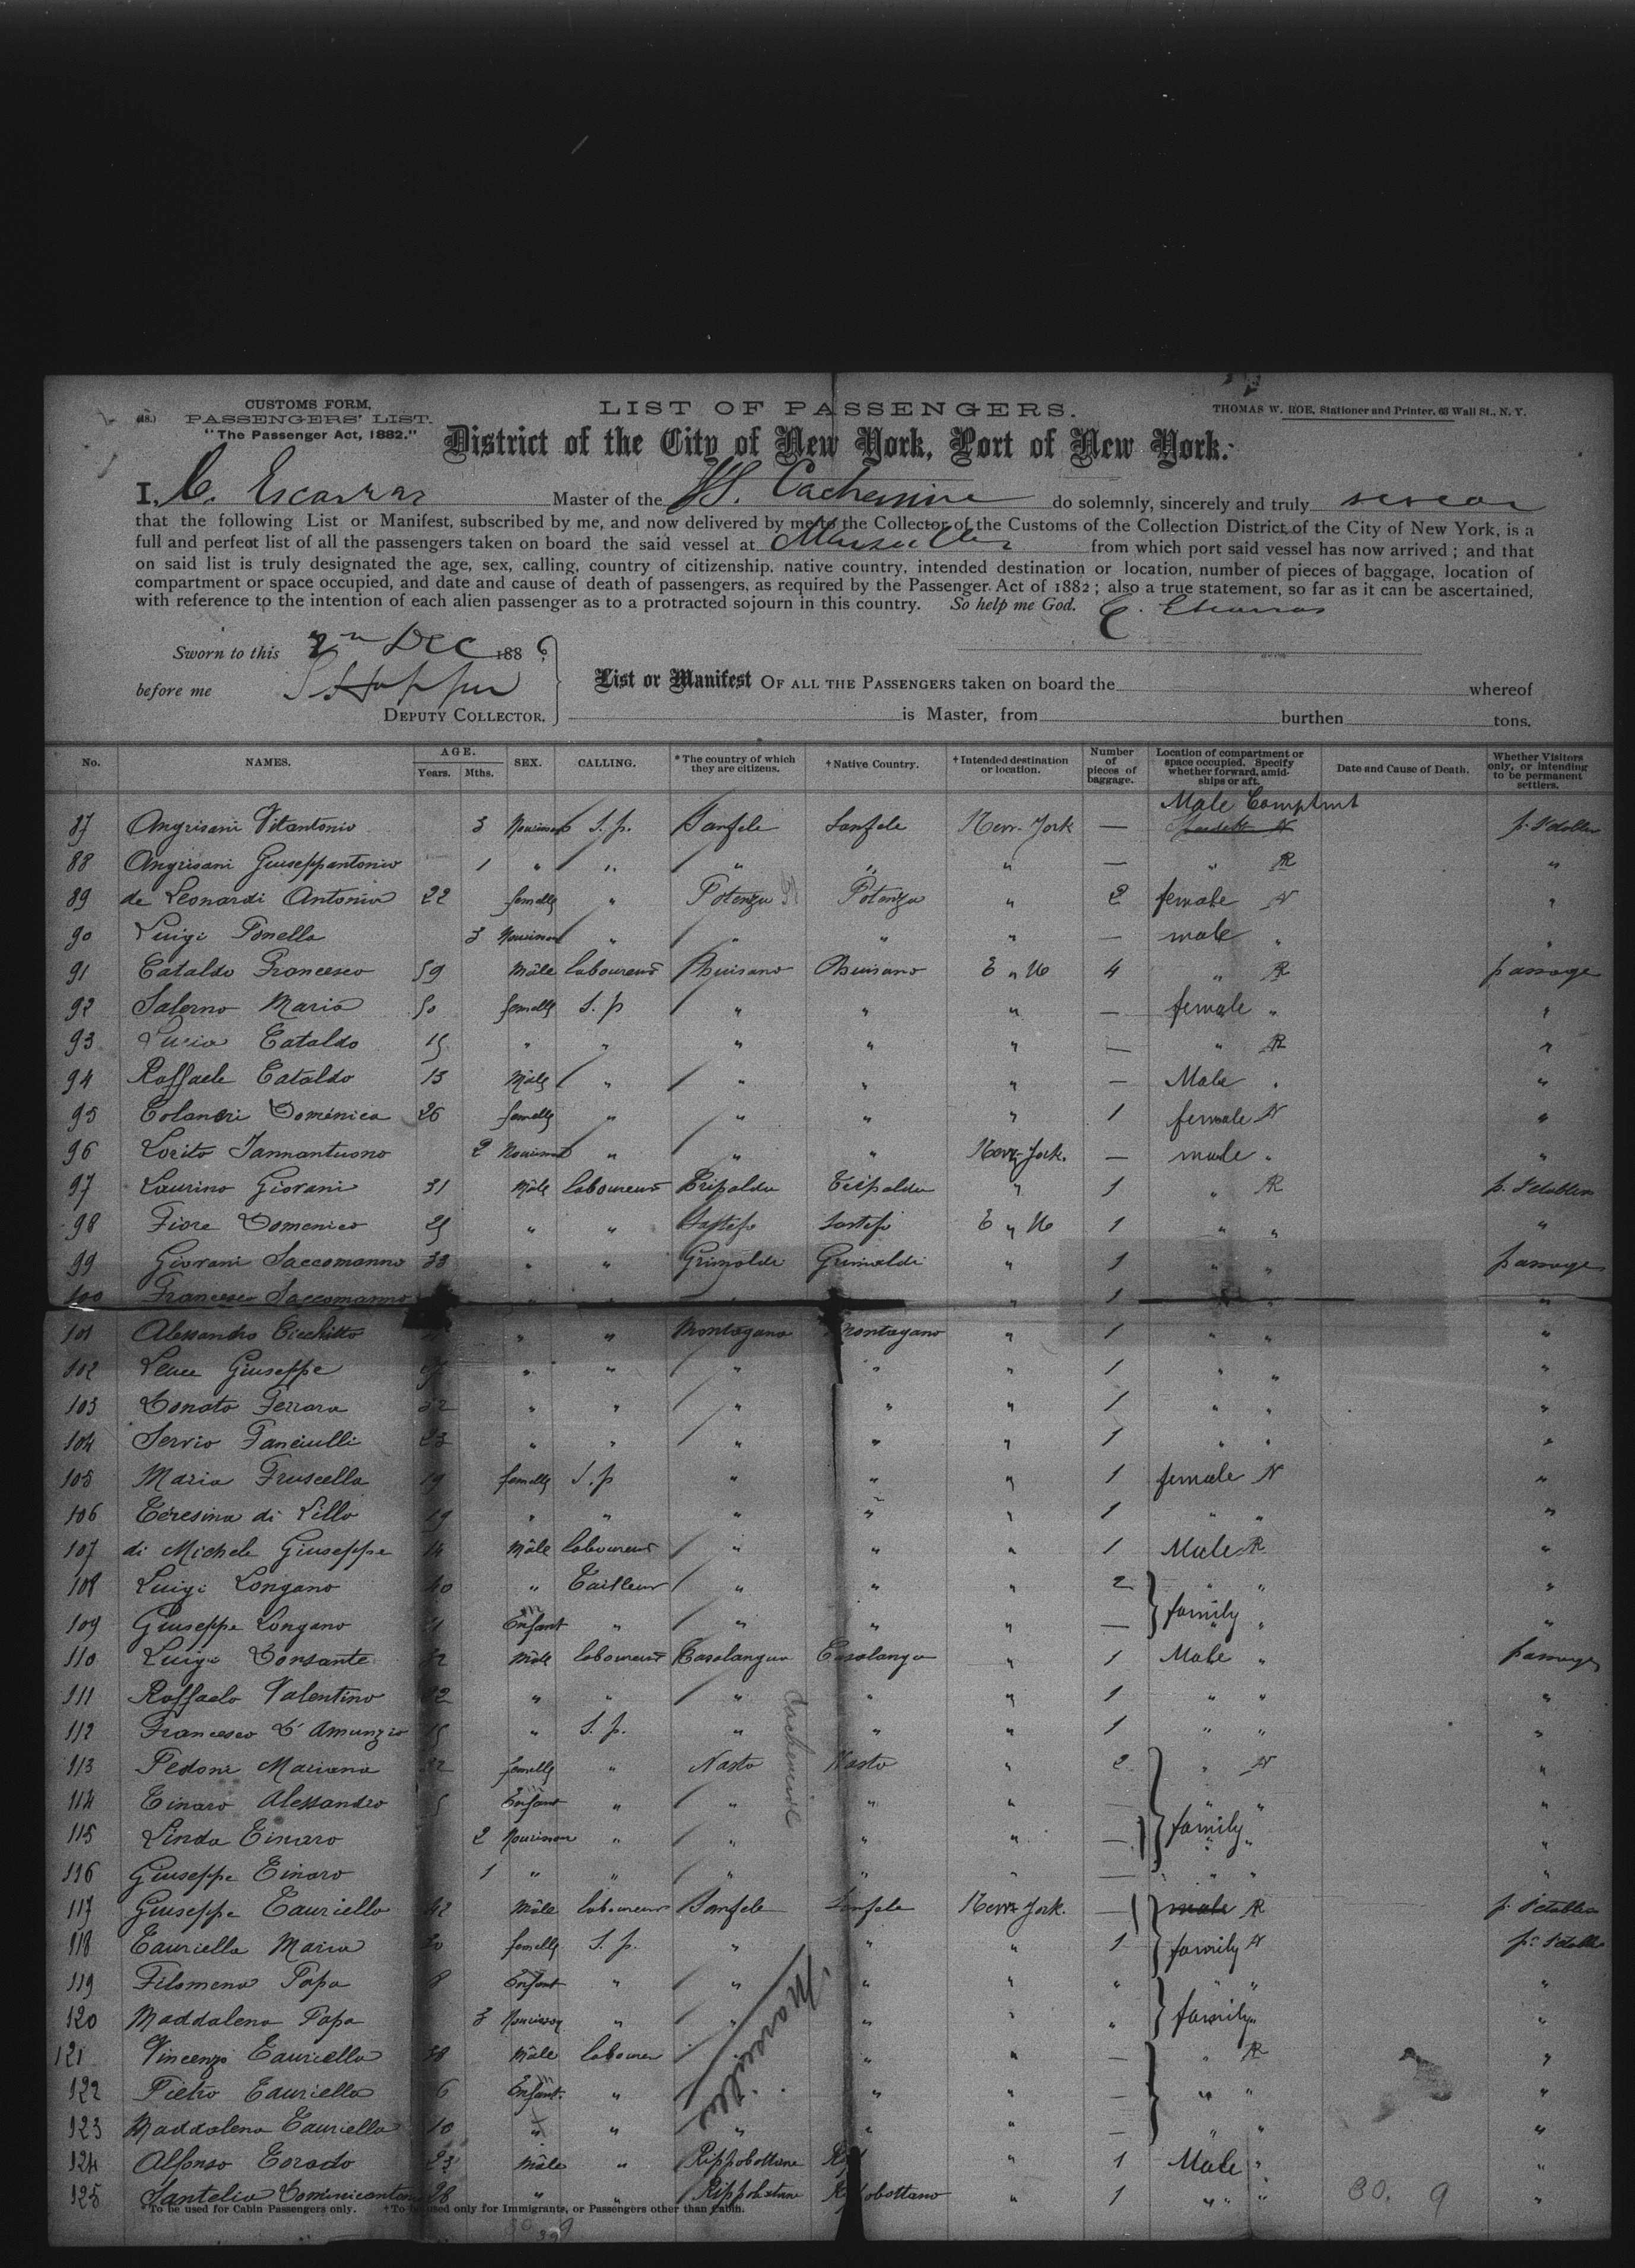 CUSTOMS FORM,
PASSENGERS' LIST.
"The Passenger Act, 1882."
LIST OF PASSENGERS.
THOMAS W. ROE, Stationer and Printer, 63 Wall St., N. Y.
District of the City of New York, Port of New York.
I, C. Escarras Master of the SS. Cachemire do solemnly, sincerely and truly swear
that the following List or Manifest, subscribed by me, and now delivered by me to the Collector of the Customs of the Collection District of the City of New York, is a
full and perfect list of all the passengers taken on board the said vessel at Marseilles from which port said vessel has now arrived; and that
on said list is truly designated the age, sex, calling, country of citizenship, native country, intended destination or location, number of pieces of baggage, location of
compartment or space occupied, and date and cause of death of passengers, as required by the Passenger Act of 1882; also a true statement, so far as it can be ascertained,
with reference to the intention of each alien passenger as to a protracted sojourn in this country. So help me God. C. Escarras
Sworn to this Dec 1886
before me
DEPUTY COLLECTOR.
List or Manifest OF ALL THE PASSENGERS taken on board the whereof
is Master, from burthen tons.
No. NAMES. AGE. Years. Mths. SEX. CALLING. *The country of which they are citizens. †Native Country. †Intended destination or location. Number of pieces of baggage. Location of compartment or space occupied. Specify whether forward, amidships or aft. Date and Cause of Death. Whether Visitors only, or intending to be permanent settlers.
Male Comptmt
87 Angrisani Vitantonio 3 S. p. Sanfele Sanfele New-York —
88 Angrisani Giuseppantonio 1 " " " " " — " R "
89 de Leonardi Antonia 22 femelle " Potenza Potenza " 2 female N "
90 Luigi Tonella 3 " " " " — male " "
91 Cataldo Francesco 59 Mâle laboureur 4 " R passage
92 Salerno Maria 50 femelle S. p " " " — female " "
93 Lucia Cataldo 15 " " " " " — " R "
94 Raffaele Cataldo 13 Mâle " " " " — Male " "
95 Domenica 26 femelle " " " " 1 female N "
96 Lorito Iannantuono 2 " " " New-York. — male " "
97 Laurino Giovani 31 Mâle laboureur 1 " R
98 Fiore Domenico 25 " " 1 " " "
99 Giovani Saccomanno 33 " " Grimaldi Grimaldi " 1 " " passage
100 Francesco Saccomanno " " " " " 1 " " "
101 Alessandro Cicchitto " " Montagano Montagano " 1 " " "
102 Giuseppe " " " " " 1 " " "
103 Donato Ferrara 32 " " " " " 1 " " "
104 Servio Fanciulli 23 " " " " " 1 " " "
105 Maria Fruscella 19 femelle S. p " " " 1 female N "
106 Teresina di Lillo 19 " " " " " 1 " " "
107 di Michele Giuseppe 14 Mâle laboureur " " " 1 Male R "
108 Luigi Longano 40 " Tailleur " " " 2 " " "
109 Giuseppe Longano Enfant " " " " — family " "
110 Luigi Dorsante 32 Mâle laboureur Casolangua Casolanga " 1 Male " passage
111 Raffaelo Valentino " " " " " 1 " " "
112 Francesco D'Amunzio 15 " S. p. " " " 1 " " "
113 Pedoni Mariana 32 femelle " Nasto Nasto " 2 " N "
114 Tinaro Alessandro 5 Enfant " " " " " " "
115 Linda Tinaro 2 " " " " — family " "
116 Giuseppe Tinaro 1 " " " " " — " " "
117 Giuseppe Tauriello 42 Mâle laboureur Sanfele Sanfele New York. — male R
118 Tauriella Maria 30 femelle S. p. " " " 1 family N
119 Filomena Papa 8 Enfant " " " " " " " "
120 Maddalena Papa 3 " " " " " family " "
121 Vincenzo Tauriella 38 Mâle " " — " R "
122 Pietro Tauriella 6 Enfant " " " — " " "
123 Maddalena Tauriella 10 " " " " " — " " "
124 Alfonso Corado 23 Mâle " Rippobottone " 1 Male " "
125 Santelia Dominicantonio 28 " " Rippobottano " 1 " " "
Cachemire
Marseille
30. 9
*To be used for Cabin Passengers only. †To be used only for Immigrants, or Passengers other than Cabin.